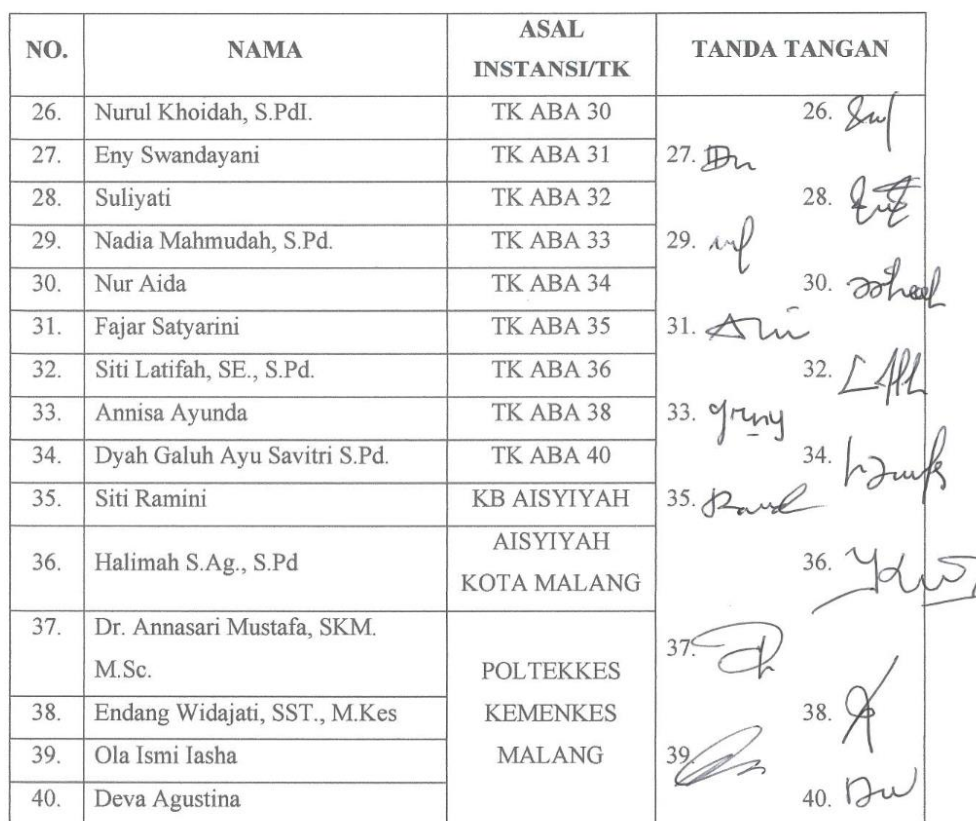 NO. NAMA ASAL INSTANSI/TK TANDA TANGAN
26. Nurul Khoidah, S.PdI. TK ABA 30 26.
27. Eny Swandayani TK ABA 31 27.
28. Suliyati TK ABA 32 28.
29. Nadia Mahmudah, S.Pd. TK ABA 33 29.
30. Nur Aida TK ABA 34 30.
31. Fajar Satyarini TK ABA 35 31.
32. Siti Latifah, SE., S.Pd. TK ABA 36 32.
33. Annisa Ayunda TK ABA 38 33.
34. Dyah Galuh Ayu Savitri S.Pd. TK ABA 40 34.
35. Siti Ramini KB AISYIYAH 35.
36. Halimah S.Ag., S.Pd AISYIYAH KOTA MALANG 36.
37. Dr. Annasari Mustafa, SKM. M.Sc. POLTEKKES KEMENKES MALANG 37.
38. Endang Widajati, SST., M.Kes 38.
39. Ola Ismi Iasha 39
40. Deva Agustina 40.